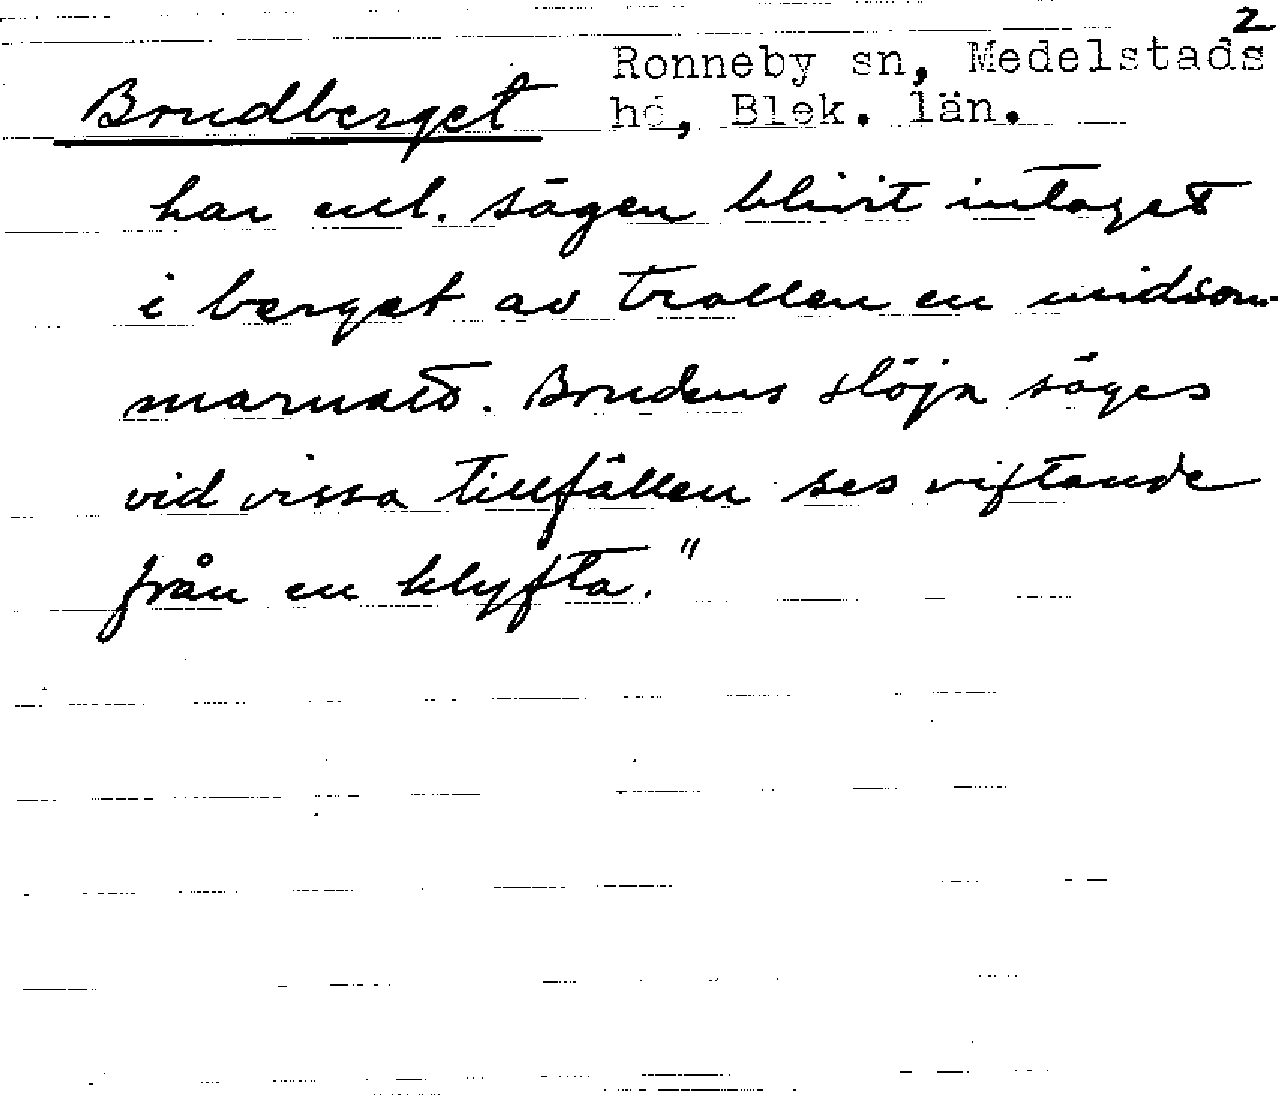 2
Ronneby sn, Medelstads
Brudberget hd, Blek. län.
har enl. sägen blivit intaget
i berget av trollen en midsom-
marnatt. Brudens slöja säges
vid vissa tillfällen ses viftande
från en klyfta."